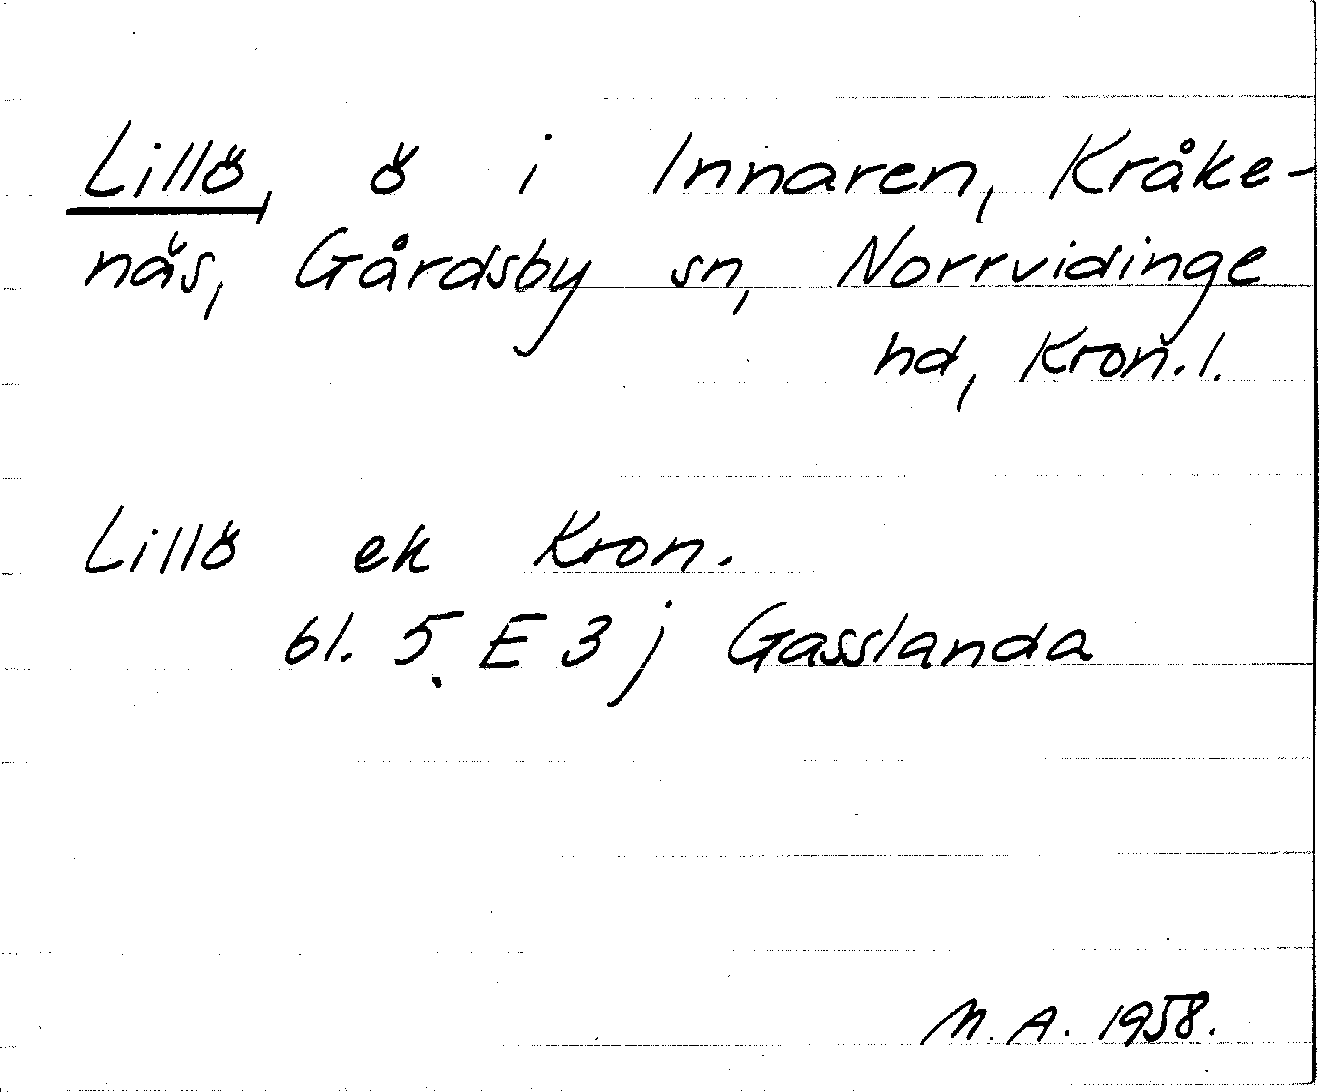 Lillö, ö i Innaren, Kråke-
näs, Gårdsby sn, Norrvidinge
hd, Kron. l.
Lillö ek Kron.
bl. 5 E 3 j Gasslanda
M. A. 1958.